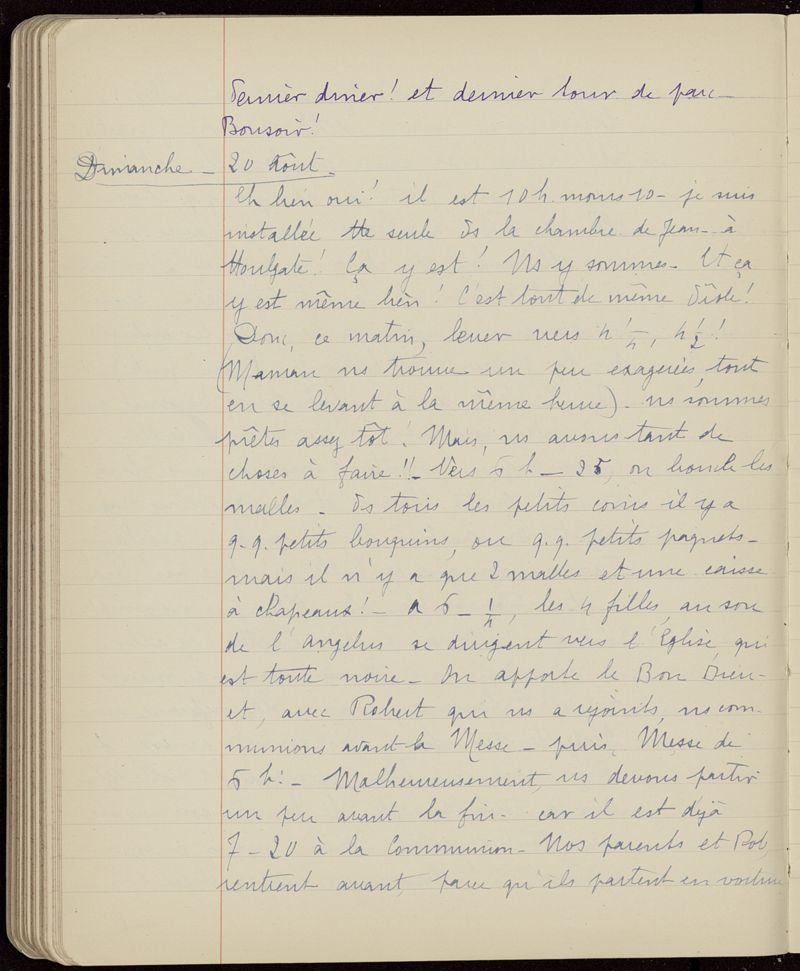 dernier dîner! et dernier tour de parc –
Bonsoir!
Dimanche – 20 Août –
Eh bien oui! il est 10 h moins 10 – je suis
installée tte seule ds la chambre de Jean – à
Houlgate! Ça y est! Ns y sommes – Et ça
y est même bien! C'est tout de même drôle!
Donc, ce matin, lever vers 4 1/4, 4 1/2!
(Maman ns trouve un peu exagérées, tout
en se levant à la même heure) – ns sommes
prêtes assez tôt! Mais, ns avons tant de
choses à faire!! – Vers 5 h – 25, on boucle les
malles – ds tous les petits coins il y a
q.q. petits bouquins, ou q.q. petits paquets –
mais il n'y a que 2 malles et une caisse
à chapeaux! – A 6 – 1/4, les 4 filles, au son
de l'angelus se dirigent vers l'Eglise, qui
est toute noire – On apporte le Bon Dieu –
et, avec Robert qui ns a rejoints, ns com-
munions avant la Messe – puis, Messe de
6 h: – Malheureusement, ns devons partir
un peu avant la fin – car il est déjà
7 – 20 à la Communion – Nos parents et Rob,
rentrent avant, parce qu'ils partent en voiture